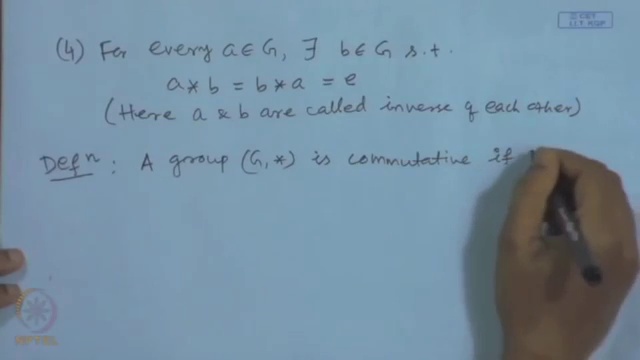 © CET
I.I.T. KGP
(4) For every a ∈ G, ∃ b ∈ G s.t.
a * b = b * a = e
(Here a & b are called inverse of each other)
Defⁿ : A group (G, *) is commutative if
NPTEL